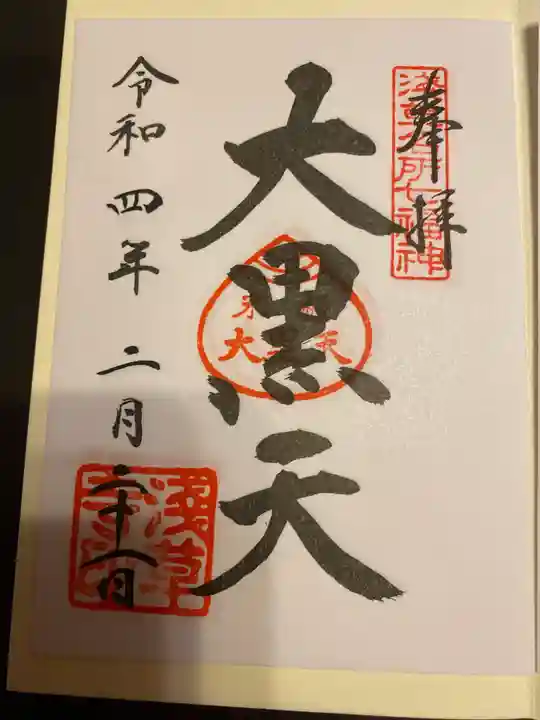 奉拝
浅草名所七福神
大黒天
令和四年二月二十一日
浅草